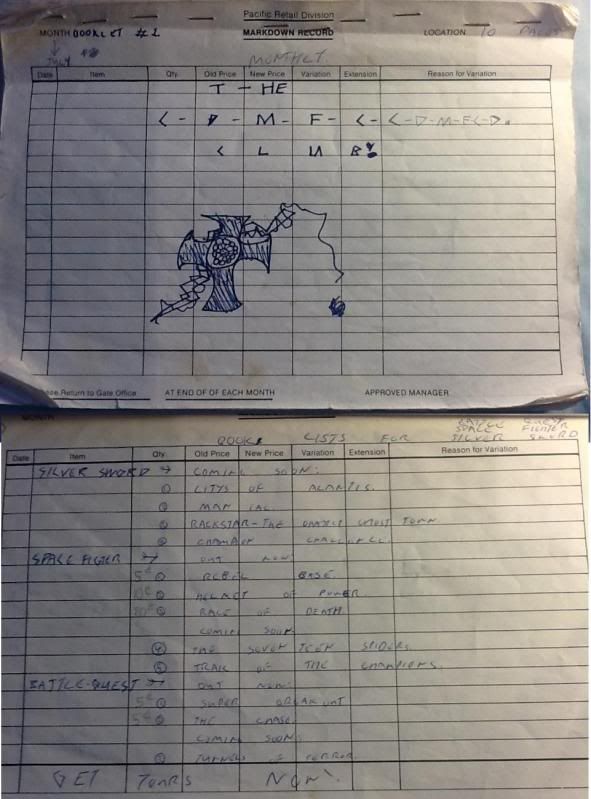 Pacific Retail Division
MONTH BOOKLET #1 MARKDOWN RECORD LOCATION 10
JULY MONTHLY
Date Item Qty. Old Price New Price Variation Extension Reason for Variation
T - HE
C - D - M - F - C - C-D-M-F-C-D.
C L U B
Return to Gate Office AT END OF OF EACH MONTH APPROVED MANAGER
MONTH
BATTLE QUEST
SPACE FIGHTER
BOOK LISTS FOR SILVER SWORD
Date Item Qty. Old Price New Price Variation Extension Reason for Variation
SILVER SWORD → COMING SOON:
① CITYS OF
② 
③ RACKSTAR-THE GHOST TOWN
④ 
SPACE FIGTER → OUT NOW:
5¢ ① REBEL BASE.
10¢ ② HELMET OF POWER.
20¢ ③ RACE OF DEATH.
COMING SOON:
④ THE SEVEN TEEN SPIDERS.
⑤ TRAIL OF THE CHAMPIONS.
BATTLE-QUEST → OUT NOW:
5¢ ① SUPER BREAK OUT
5¢ ② THE CHASE
COMING SOON:
③ TUNNELS OF TERROR.
GET YOURS NOW!